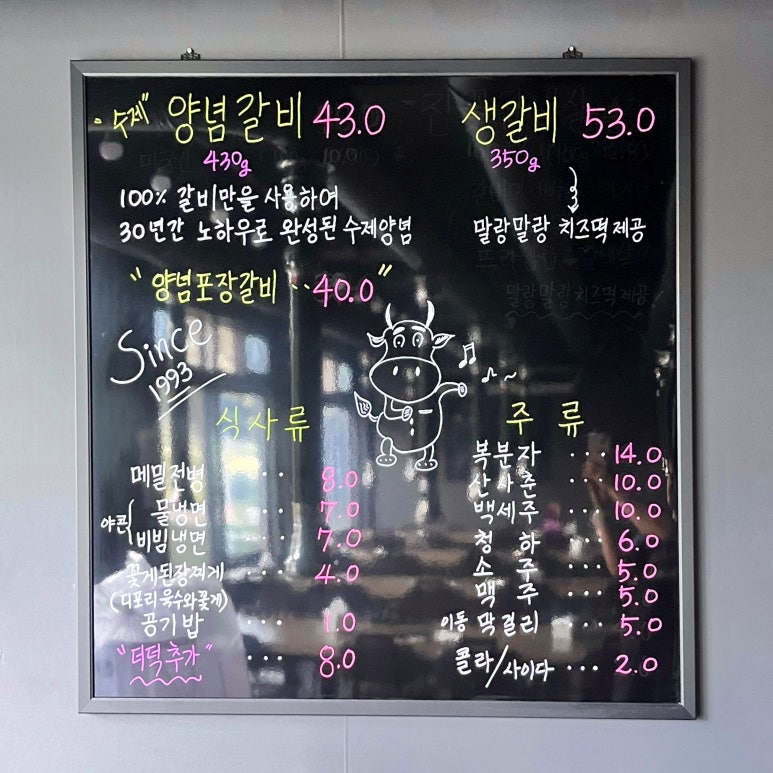 "수제" 양념갈비 43.0
430g
100% 갈비만을 사용하여
30년간 노하우로 완성된 수제양념
"양념포장갈비 ·· 40.0"
생갈비 53.0
350g
말랑말랑 치즈떡 제공
말랑말랑 치즈떡 제공
Since
1993
식사류
메밀전병 ·· 8.0
야콘{ 물냉면 ·· 7.0
비빔냉면 ·· 7.0
꽃게된장찌게 ·· 4.0
(디포리육수와꽃게)
공기밥 ··· 1.0
"더덕추가" ··· 8.0
주류
복분자 ··· 14.0
산사춘 ··· 10.0
백세주 ··· 10.0
청하 ··· 6.0
소주 ··· 5.0
맥주 ··· 5.0
이동 막걸리 ··· 5.0
콜라/사이다 ··· 2.0